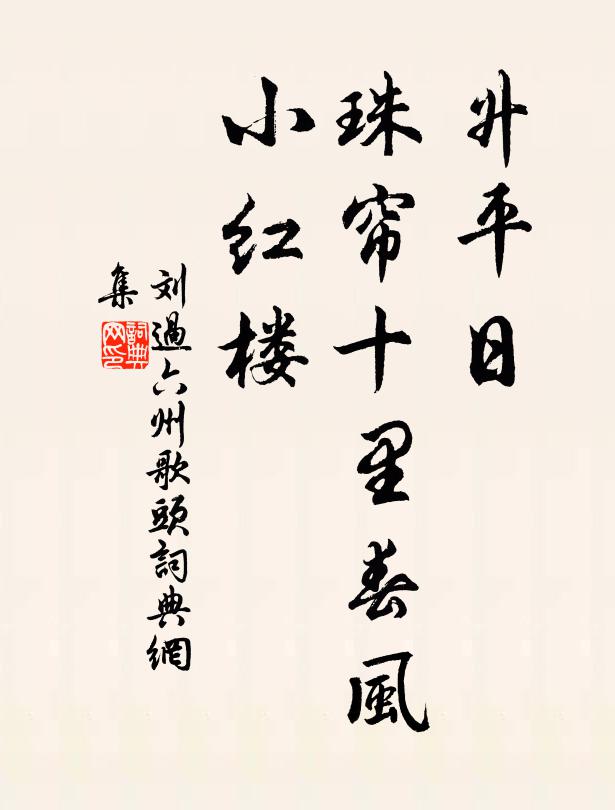 升平日
珠帘十里春風
小红楼
刘過六州歌頭詞典網
集
詞典
网印